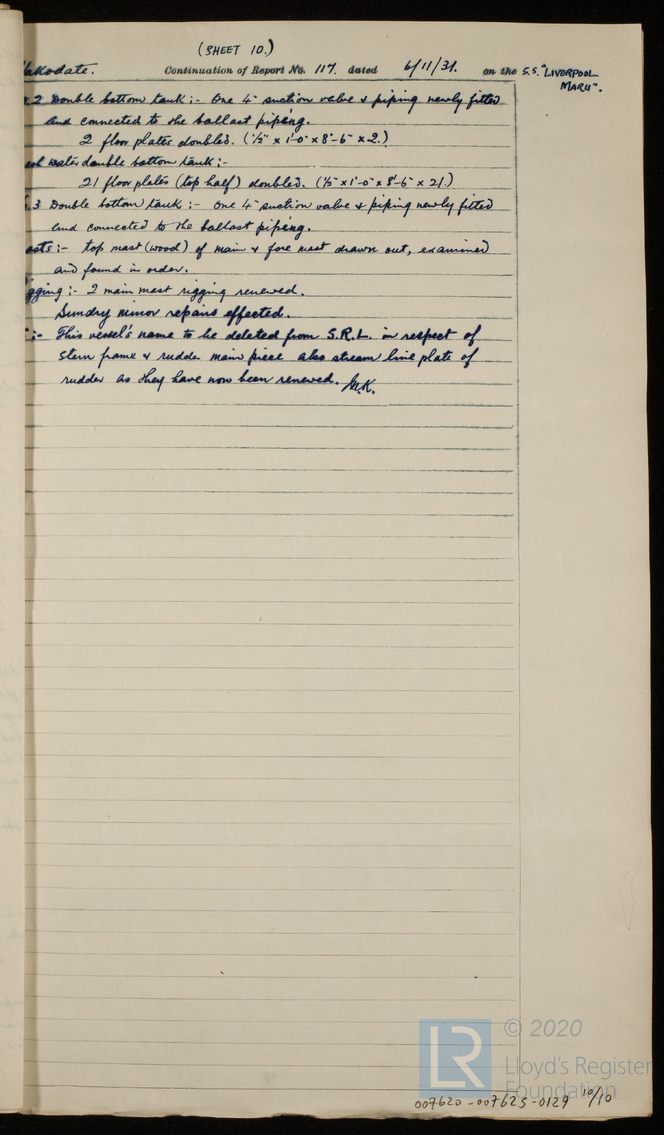 (SHEET 10.)
akodate. Continuation of Report No. 117. dated 6/11/31. on the S.S. "LIVERPOOL
MARU".
2 Double bottom tank:- One 4" suction valve & piping newly fitted
and connected to the ballast piping.
2 floor plates doubled. (½" x 1'-0" x 8'-6" x 2.)
water double bottom tank:-
21 floor plates (top half) doubled. (½" x 1'-0" x 8'-6" x 21.)
3 Double bottom tank:- One 4" suction valve & piping newly fitted
and connected to the ballast piping.
asts:- top mast (wood) of main & fore mast drawn out, examined
and found in order.
gging:- 2 main mast rigging renewed.
Sundry minor repairs effected.
:- This vessel's name to be deleted from S.R.L. in respect of
stern frame & rudder main piece also stream line plate of
rudder as they have now been renewed. M.K.
LR
© 2020
Lloyd's Register
Foundation
007620-007625-0129 10/10